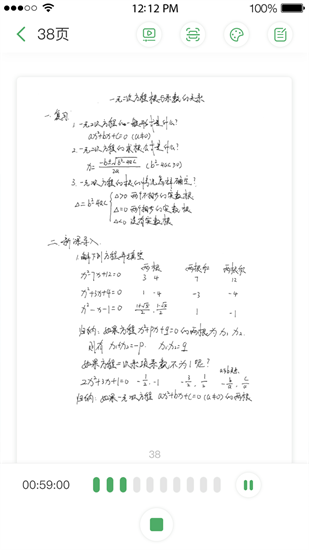 12:12 PM
100%
38页
一元二次方程根与系数的关系
一.复习
1.一元二次方程的一般形式是什么?
ax²+bx+c=0 (a≠0)
2.一元二次方程的求根公式是什么?
x= -b±√b²-4ac / 2a (b²-4ac≥0)
3.一元二次方程的根的情况怎样确定?
Δ=b²-4ac
Δ>0 两个不相等的实数根
Δ=0 两个相等的实数根
Δ<0 没有实数根
二.新课导入
1.解下列方程并填空
两根 两根和 两根积
x²-7x+12=0 3 4 7 12
x²+3x-4=0 1 -4 -3 -4
x²-x-1=0 1+√5/2, 1-√5/2 1 -1
归纳:如果方程x²+px+q=0的两根为x₁ x₂
则有 x₁+x₂=-p. x₁x₂=q
如果方程二次项系数不为1呢?
2x²+3x+1=0 -1/2, -1 -3/2, 1/2 -b/a, c/a
归纳:如果一元二次方程 ax²+bx+c=0 (a≠0)的两根
38
00:59:00